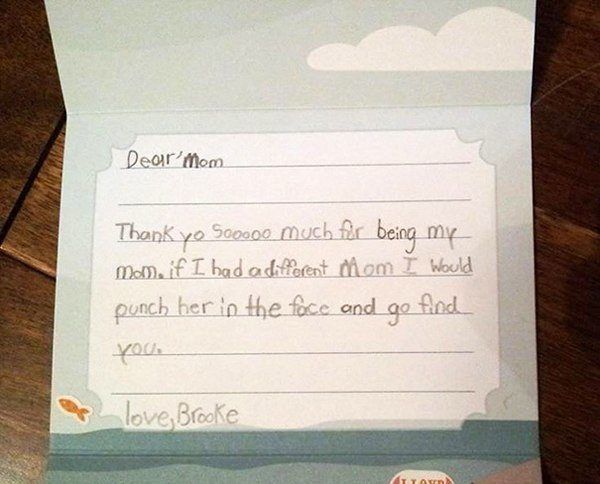 Dear Mom
Thank yo Sooooo much for being my
mom. if I had a different Mom I would
punch her in the face and go find
you.
love, Brooke
LLOYD